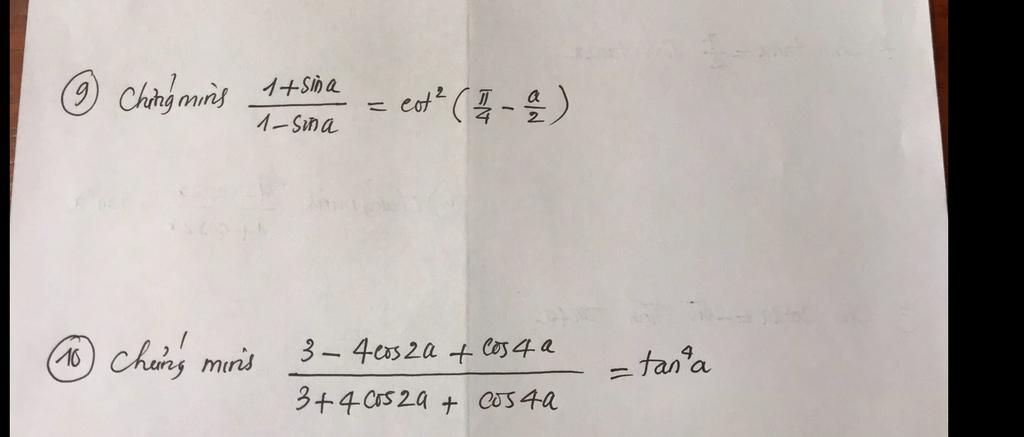 ⑨ Chứng minh (1+sina)/(1-sina) = cot²(π/4 - a/2)
⑩ Chứng minh (3-4cos2a+cos4a)/(3+4cos2a+cos4a) = tan⁴a